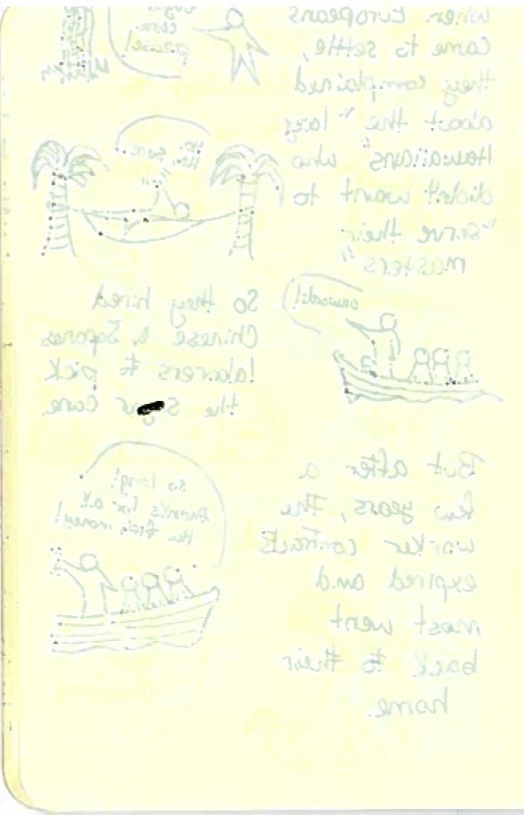 When Europeans
came to settle,
they complained
about the "lazy
Hawaiians" who
didn't want to
"serve their
masters"
cane
So they hired
Chinese &
laborers to pick
the Cane.
onward!
But after a
few years, the
worker contracts
expired and
most went
back to their
home.
So long!
thanks for all
the fish, money!